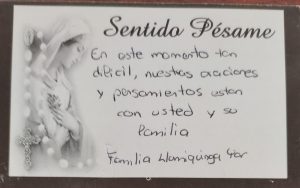 Sentido Pésame
En este momento tan
dificil, nuestras oraciones
y pensamientos estan
con usted y su
familia
Familia